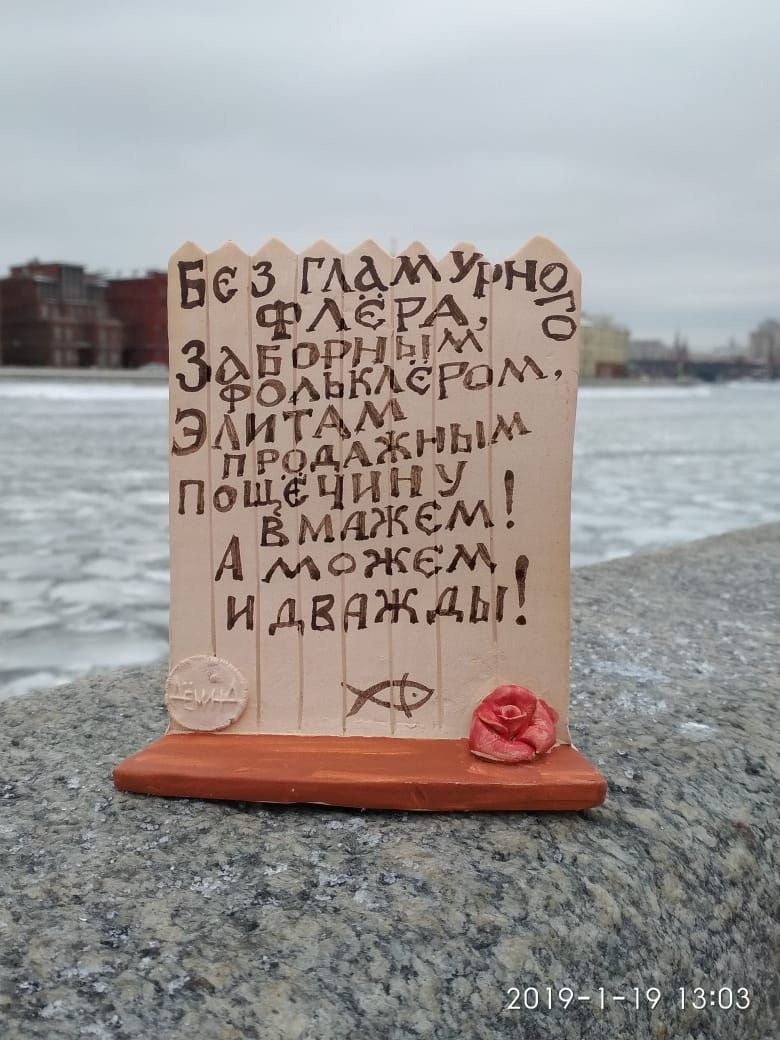 Без гламурного
флёра,
Заборным
фольклёром,
Элитам
продажным
пощёчину
вмажем!
А можем
и дважды!
2019-1-19 13:03